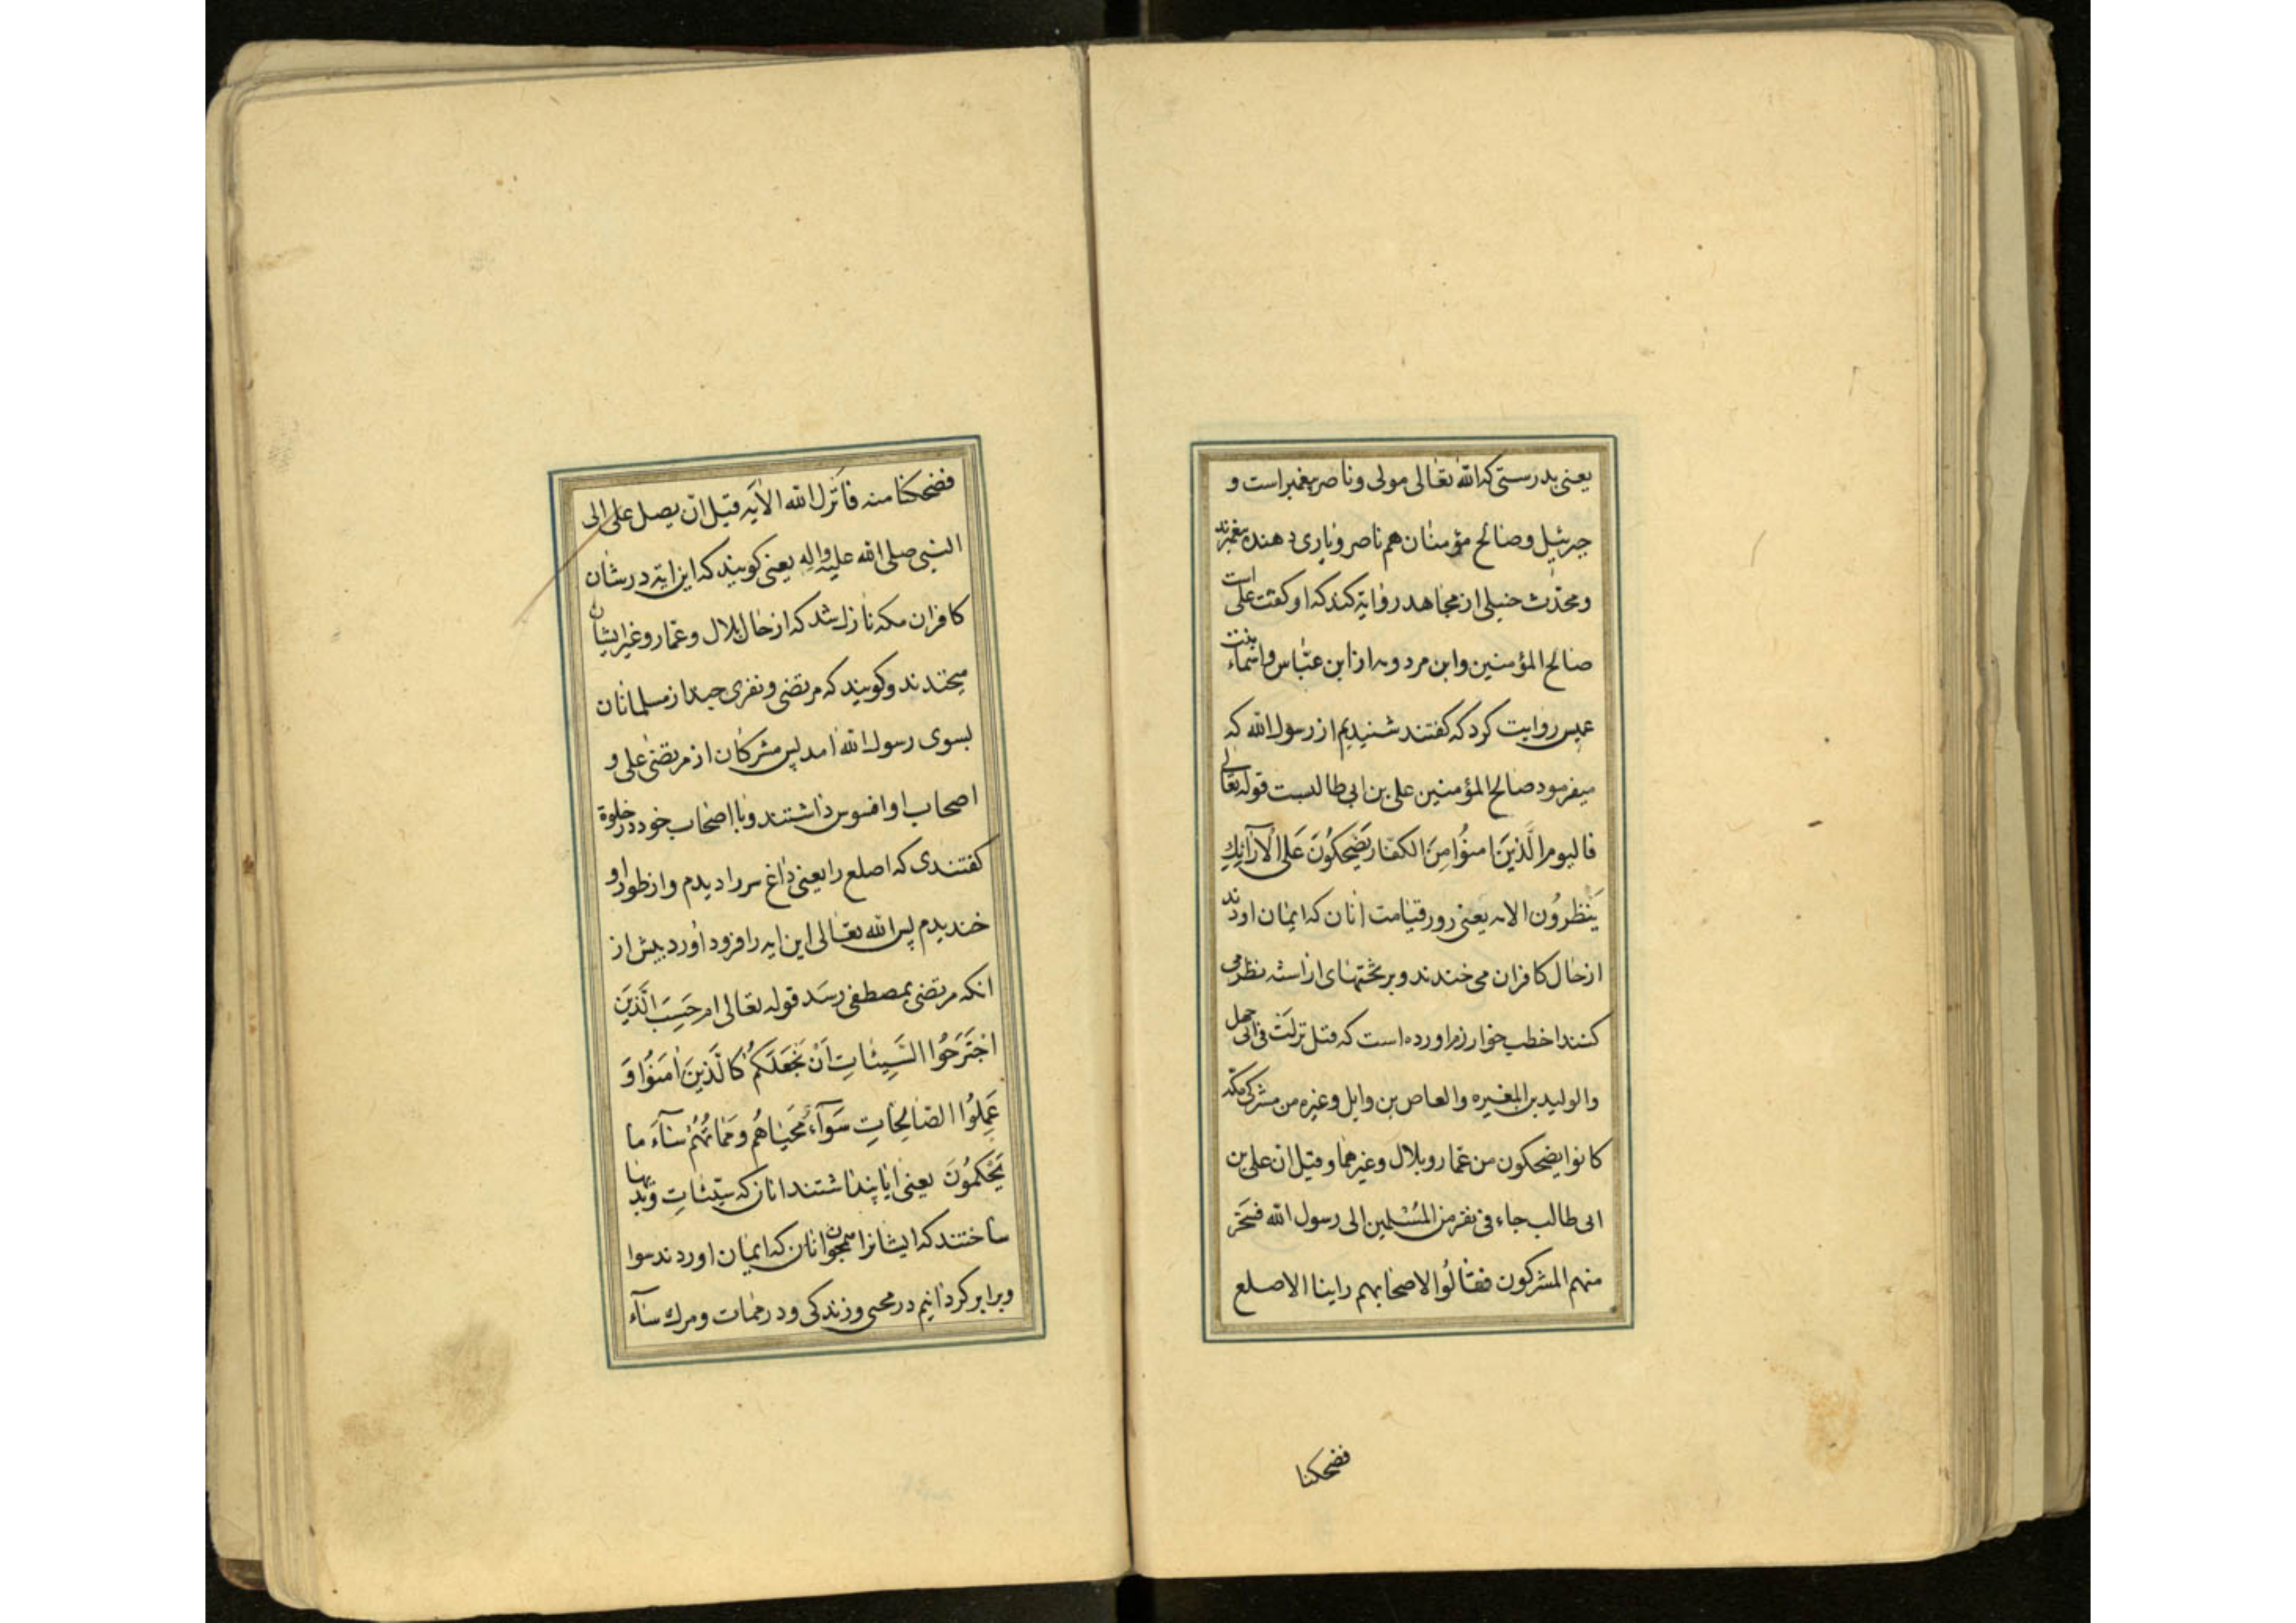 یعنی بدرستی که الله تعالی مولی و ناصر پیغمبر است و
جبرئیل و صالح مؤمنان هم ناصر و یاری دهنده پیغمبرند
و محدث حنبلی از مجاهد روایة کند که او کفت علی است
صالح المؤمنین و ابن مردویه از ابن عباس و اسماء بنت
عمیس روایت کرد که کفتند شنیدیم از رسول الله که
میفرمود صالح المؤمنین علی بن ابی طالبست قوله تعالی
فالیوم الَّذینَ امنُوا مِنَ الکفار یَضحِکُونَ عَلَی الْاَرآئِكِ
یَنْظرُون الایه یعنی روز قیامت انان که ایمان اوردند
از حال کافران می خندند و بر تختهای اراسته نظر می
کنند اخطب خوارزم اورده است که قیل نزلَت فی ابی جهل
والولید بن المغیره والعاص بن وایل وغیره من مشرکی مکه
کانوا یضحکون من عمار وبلال وغیرهما وقیل ان علی بن
ابی طالب جاء فی نفر من المُسْلمین الی رسول الله فسَخر
منهم المشرکون فقالُوا لاصحابهم راینا الاصلع
فضحکنا
فضحکنا منه فانزل الله الایه قبل ان یصل علی الی
النبی صلی الله علیه واله یعنی کویند که این ایة در شان
کافران مکه نازل شد که از حال بلال و عمار و غیر ایشان
میخندند و کویند که مرتضی و نفری چند از مسلمانان
بسوی رسول الله امد پس مشرکان از مرتضی علی و
اصحاب او افسوس داشتند و با اصحاب خود در خلوة
کفتندی که اصلع را یعنی داغ سر را دیدم و از طور او
خندیدم پس الله تعالی این ایه را فرود آورد پیش از
انکه مرتضی بمصطفی رسَد قوله تعالی ام حَسِبَ الَّذینَ
اجْتَرَحُوا السَّیِئاتِ اَنْ نَجْعَلَکُمْ کَالَّذینَ اٰمَنُوا وَ
عَمِلُوا الصّالِحاتِ سَوآءً مَحیاهُم ومَماتُهُمْ سآءَ ما
یَحْکمُونَ یعنی ایا پنداشتند انان که سیّئاتِ و بدیها
ساختند که ایشانرا همچون انان که ایمان اوردند سوا
و برابر کردانیم در محیی و زندکی و در ممات و مرك سآء